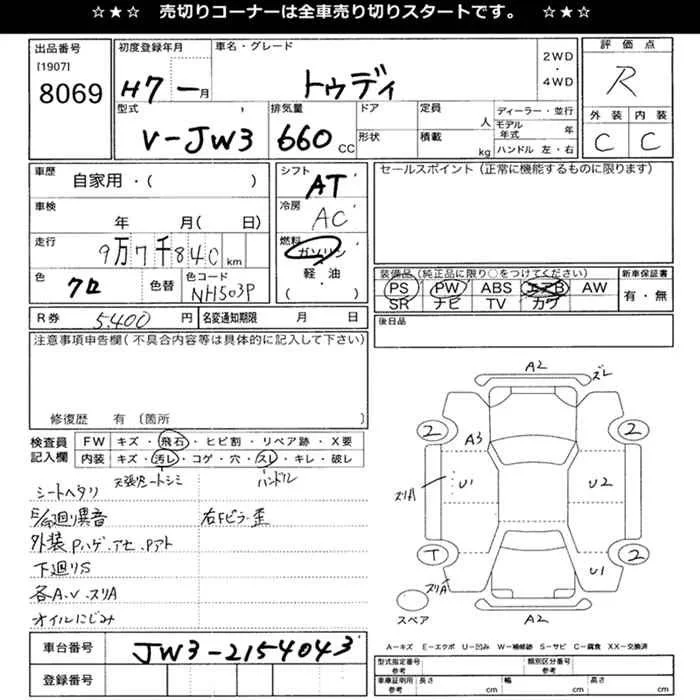 ☆★☆ 売切りコーナーは全車売り切りスタートです。 ☆★☆
出品番号
[1907]
8069
初度登録年月
H7 一月
車名・グレード
トゥディ
2WD
・
4WD
評価点
R
外装 内装
C C
型式
V-JW3
排気量
660 CC
ドア
形状
定員
人
積載
kg
ディーラー・並行
モデル年式 年
ハンドル 左・右
車歴
自家用・( )
シフト
AT
セールスポイント(正常に機能するものに限ります)
車検
年 月( 日)
冷房
AC
走行
9万7千840 km
燃料
ガソリン
軽・油
( )
色
クロ
色替
色コード
NH503P
装備品(純正品に限り○をつけてください)
PS PW ABS エアB AW
SR ナビ TV カワ
新車保証書
有・無
R券 5.400 円
名変通知期限 月 日
後日品
注意事項申告欄(不具合内容等は具体的に記入して下さい)
修復歴 有(箇所 )
検査員記入欄
FW キズ・飛石・ヒビ割・リペア跡・X要
内装 キズ・汚レ・コゲ・穴・スレ・キレ・破レ
天張.シートシミ ハンドル
シートヘタリ
E/G廻リ異音 右Fピラー歪
外装Pハゲ.アセ.Pアト
下廻リS
各A.V.スリA
オイルにじみ
車台番号
JW3-2154043
登録番号
A2
ズレ
2 2
A3
スリA
U1 U2
T 2
スリA
U1
スペア
A2
A-キズ E-エクボ U-凹み W-補修跡 S-サビ C-腐食 XX-交換済
型式指定番号参考
類別区分番号参考
車庫証明用参考
長さ cm
幅 cm
高さ cm